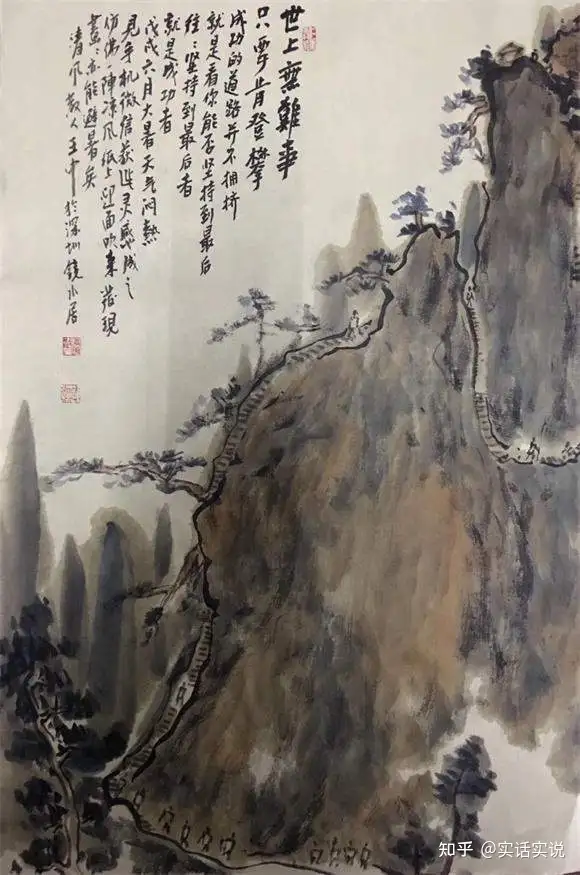 世上無難事
只要肯登攀
成功的道路并不拥挤
就是看你能否坚持到最后
往々坚持到最后者
就是成功者
戊戌六月大暑天气闷熱
見手机微信获此灵感成之
仿佛一陣凉风纸上迎面吹来發現
畫々亦能避暑矣
清风散人王中於深圳镜水居
知乎 @实话实说